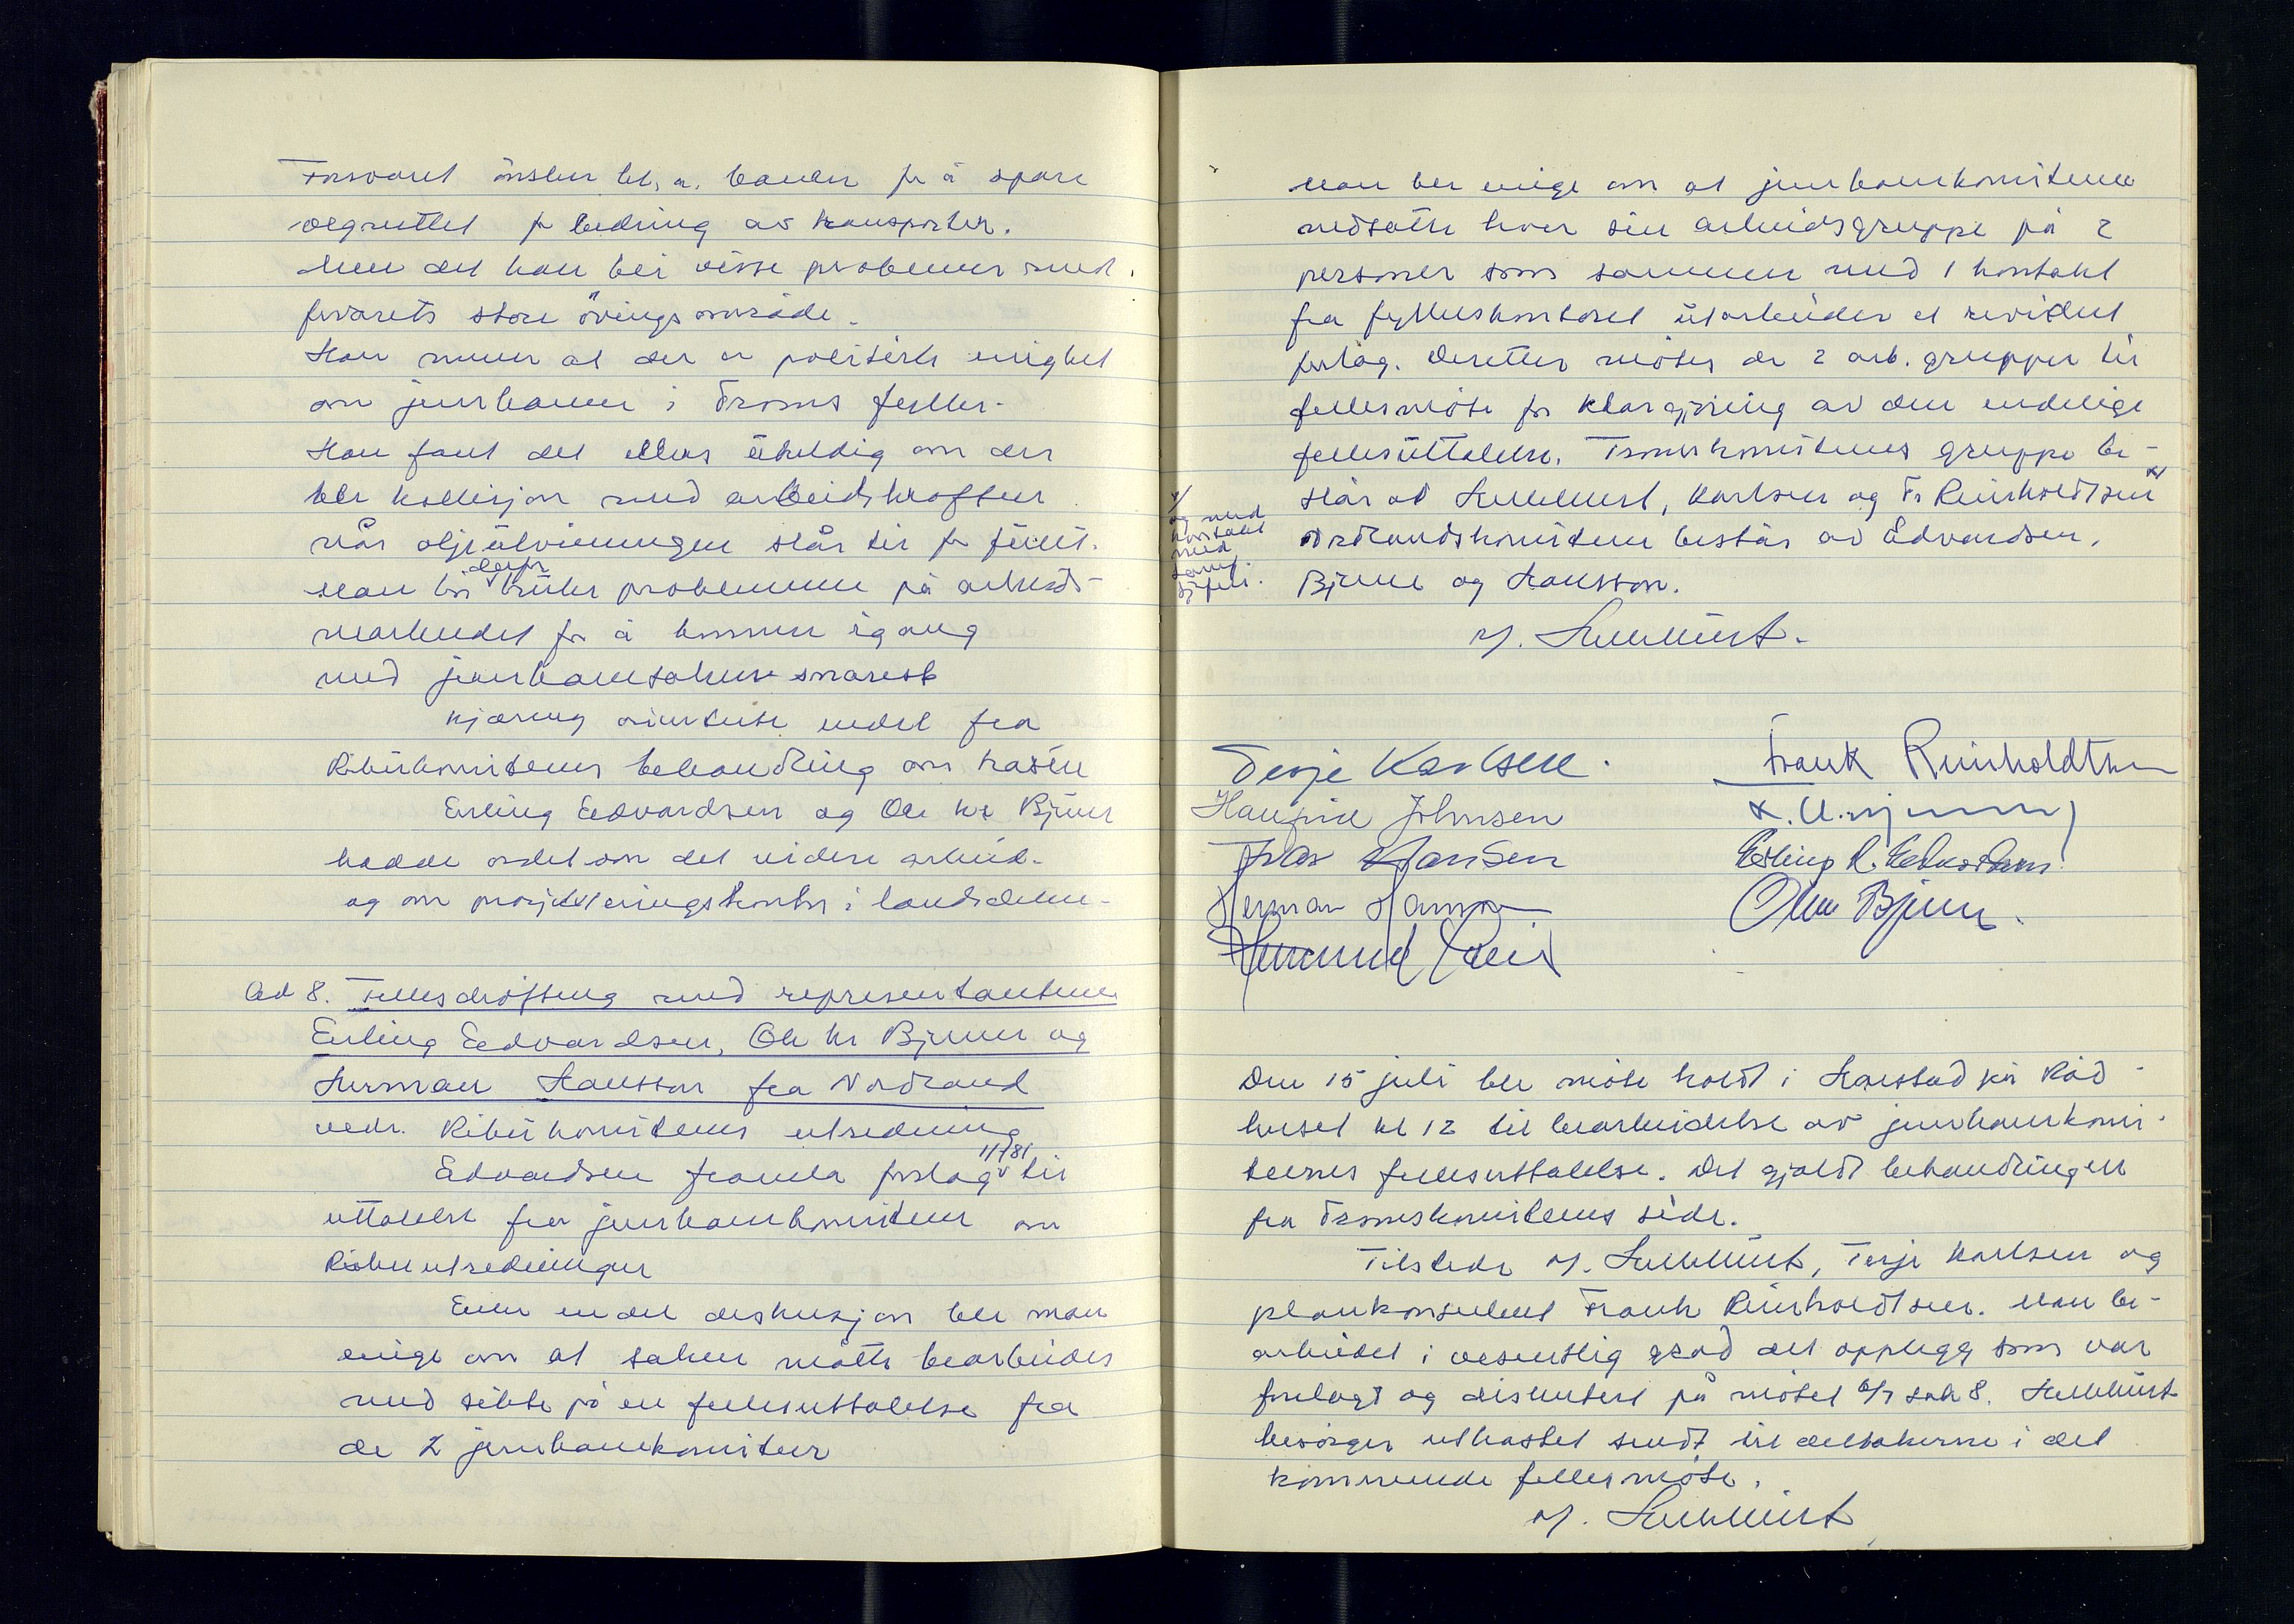 Forsvaret ønsker bl. a. banen for å spare
vegnettet for bedring av transporter.
Men det kan bli visse problemer med
forsvarets store øvingsområde.
Han mener at der er politisk enighet
om jernbanen i Troms fylke.
Han fant det ellers uheldig om der
ble kollisjon med arbeidskraften
når oljeutvinningen slår til for fullt.
Man bør derfor bruke problemene på arbeids-
markedet for å komme igang
med jernbanesaken snarest
Kjæreng orienterte endel fra
Ribukomiteens behandling om traséen
Erling Edvardsen og Ole Kr Bjerm
hadde ordet om det videre arbeid.
og om prosjekteringskontor i landsdelen.
Ad 8. Fellesdrøfting med representantene
Erling Edvardsen, Ole Kr Bjerm og
Herman Hansson fra Nordland
vedr. Ribukomiteens utredning
Edvardsen framla forslag 1/7 81 til
uttalelse fra jernbanekomiteen om
Ribuutredningen
Etter en del diskusjon ble man
enige om at saken måtte bearbeides
med sikte på en fellesuttalelse fra
de 2 jernbanekomiteer
Man ble enige om at jernbanekomiteene
nedsatte hver sin arbeidsgruppe på 2
personer som sammen med 1 kontakt
fra fylkeskontoret utarbeider et revidert
forslag. Deretter møtes de 2 arb. grupper til
fellesmøte for klargjøring av den endelige
fellesuttalelse. Tromskomiteens gruppe be-
står av Lullmist, Karlsen og Fr Reinholdtsen x/
x/
og med
kontakt
med
samf.
sjefen.
Nordlandskomiteen består av Edvardsen,
Bjerm og Hansson.
M.
Terje Karlsen.
Frank Reinholdtsen
Haugfrid Johnsen
Hansen
Erling R. Edvardsen
Herman Hansson
Ole Bjerm.
Den 15 juli ble møte holdt i Harstad på Råd-
huset kl 12 til bearbeidelse av jernbanekomi-
teenes fellesuttalelse. Det gjaldt behandlingen
fra Tromskomiteens side.
Tilstede M. Terje Karlsen og
plankonsulent Frank Reinholdtsen. Man be-
arbeidet i vesentlig grad det opplegg som var
forelagt og diskutert på møtet 6/7 sak 8.
besørger utkastet sendt til deltakerne i det
kommende fellesmøte.
M.